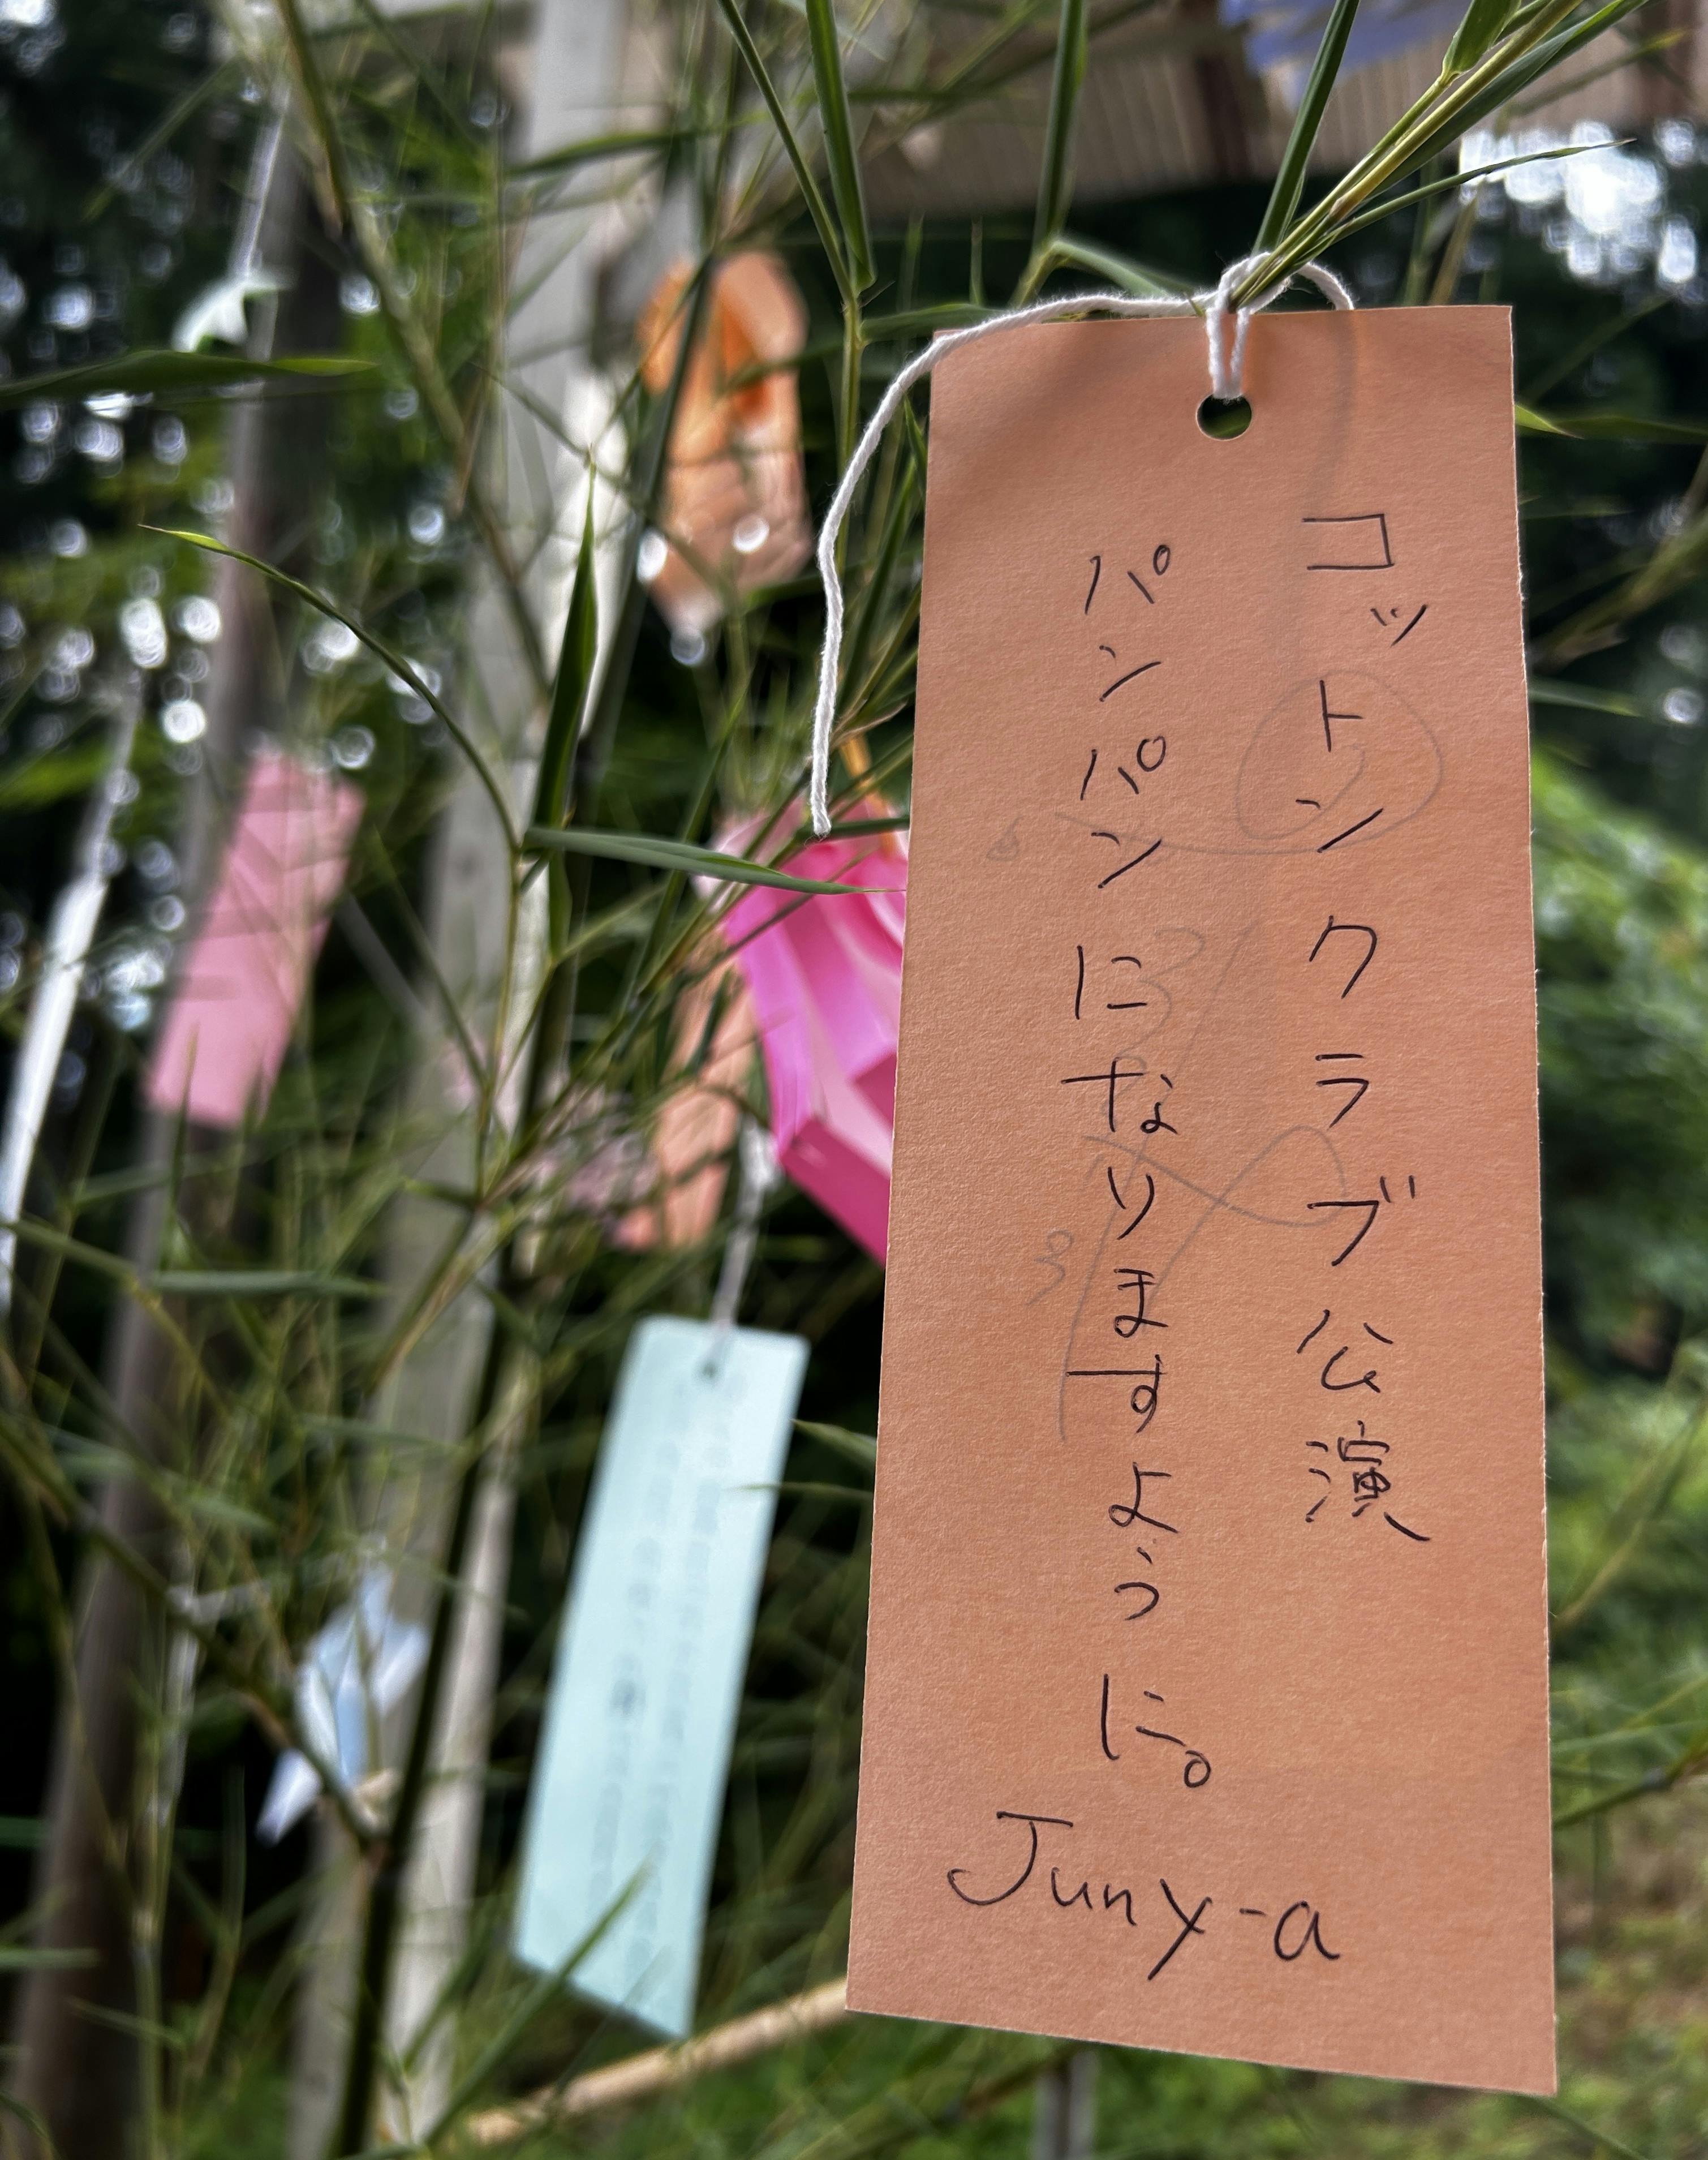 コットンクラブ公演
パンパンになりますように。
Juny-a